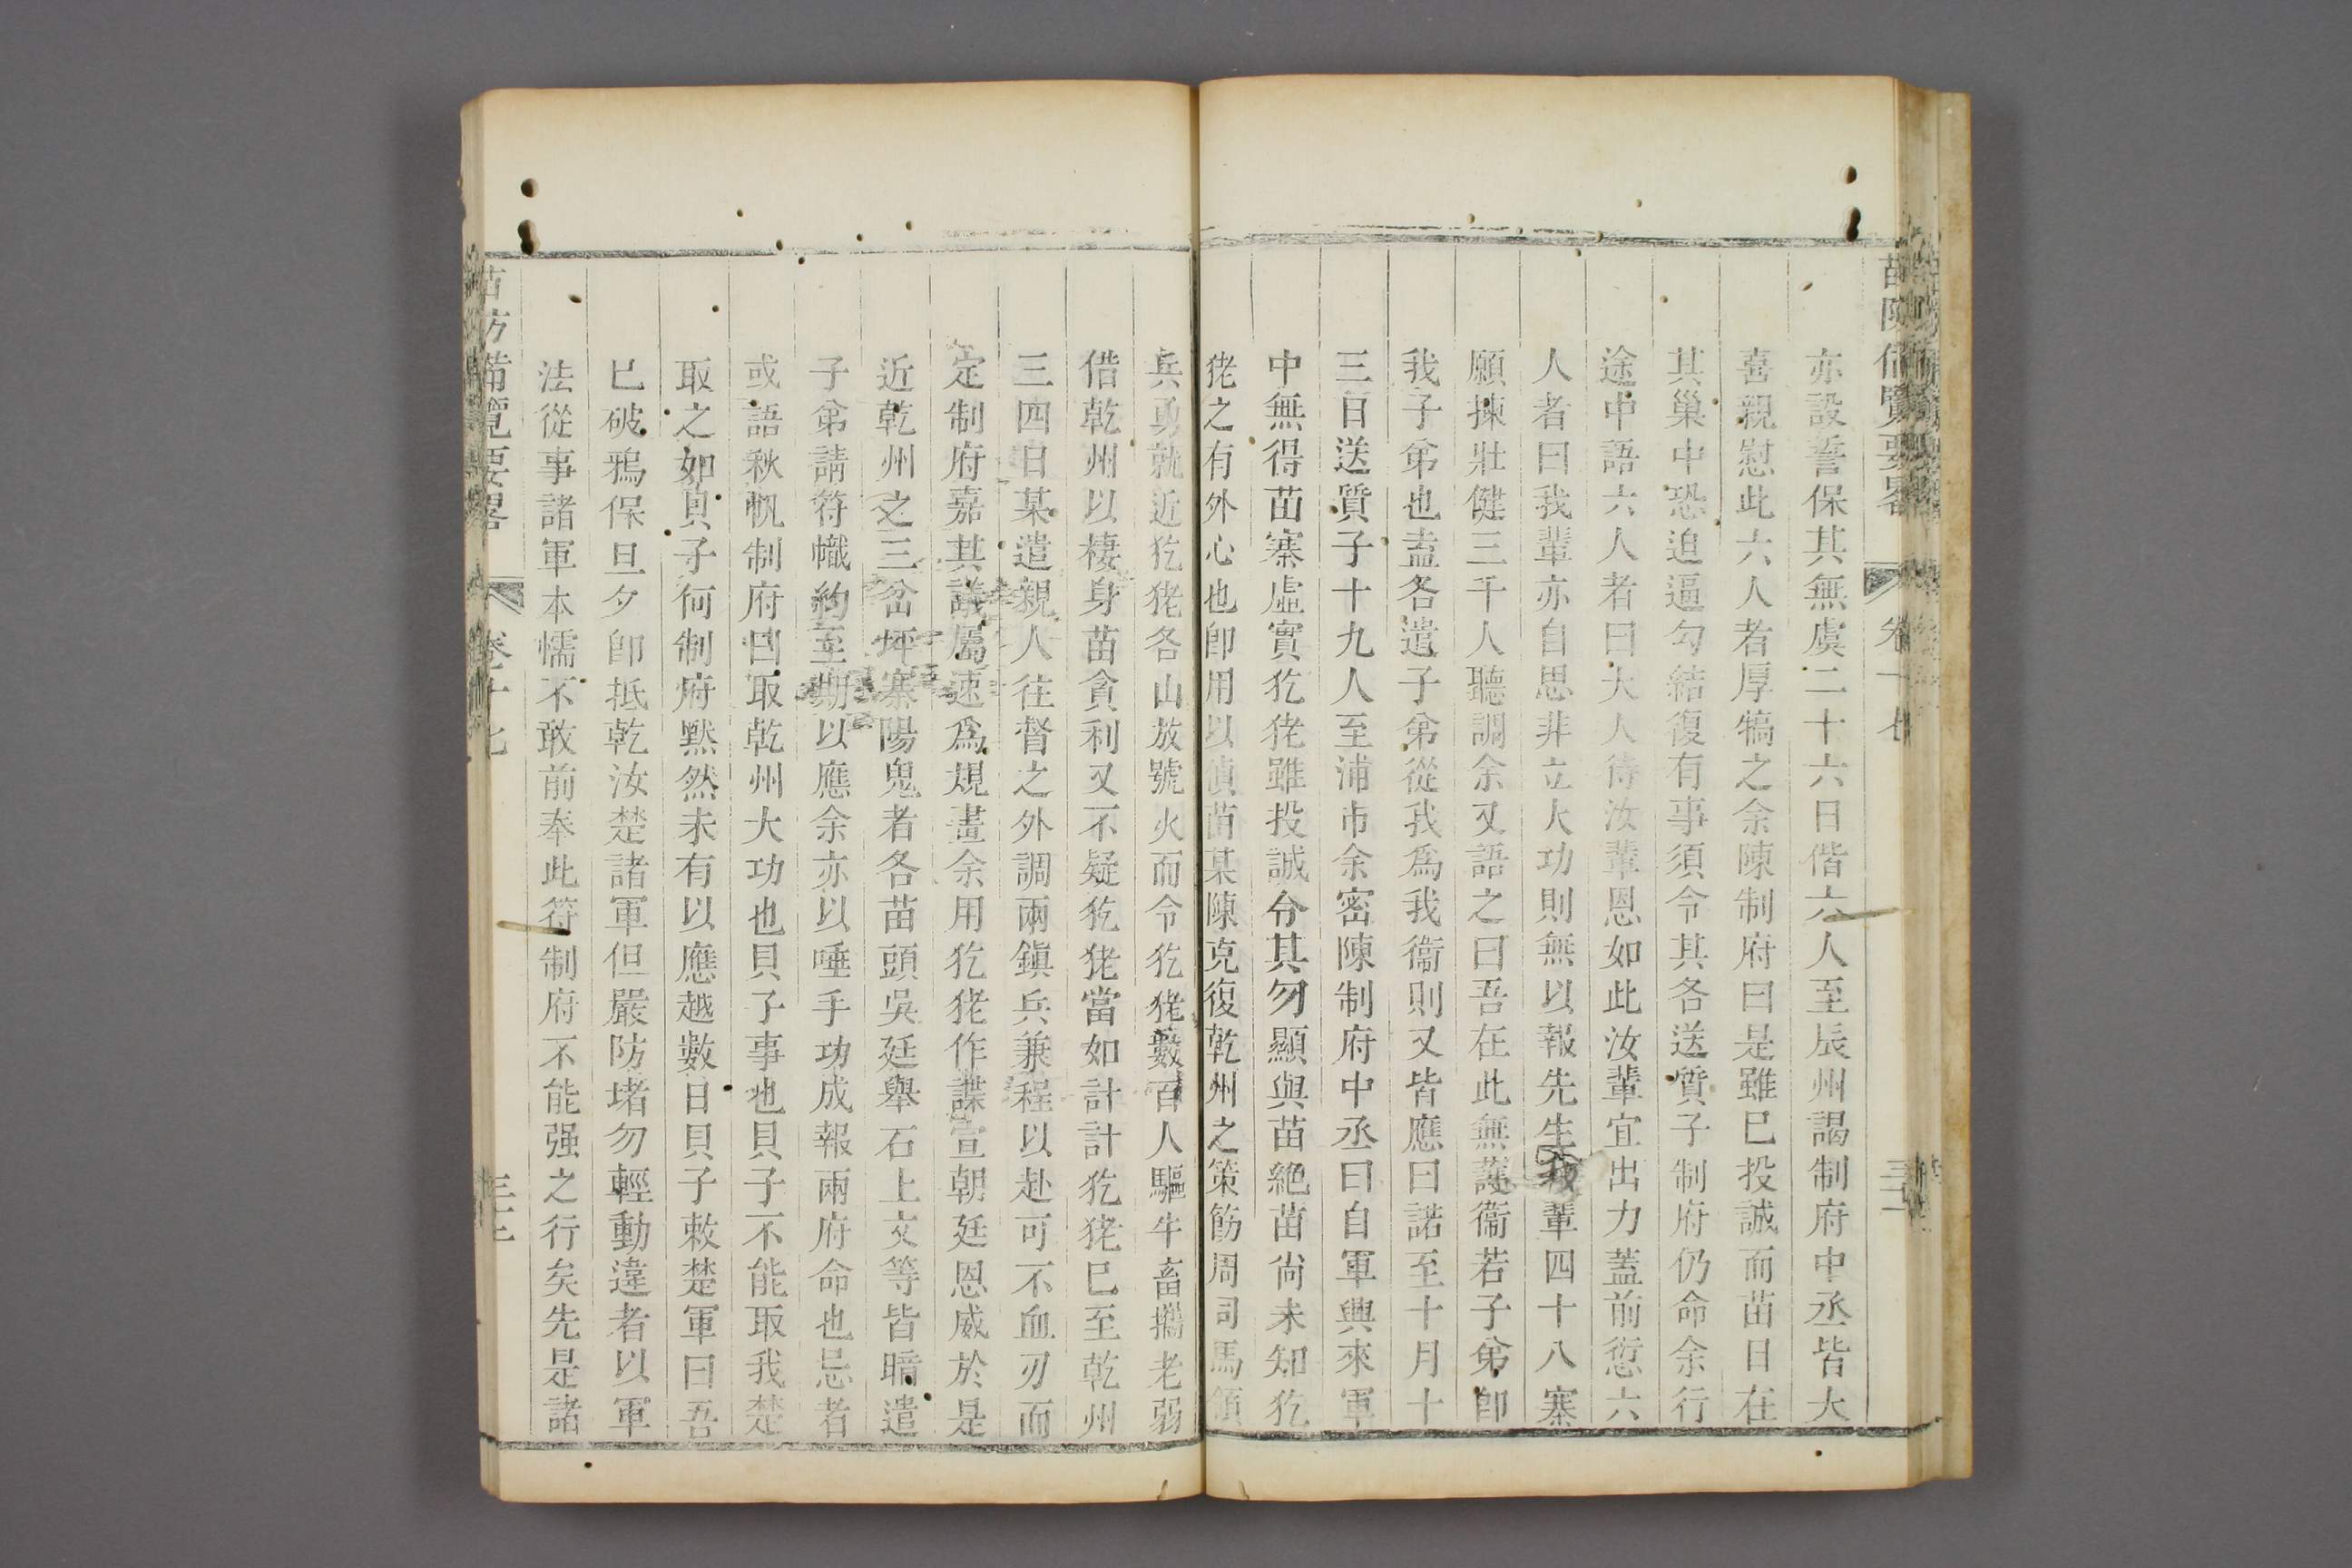 苗防備覽要畧 卷十七 三二
亦設誓保其無虞二十六日偕六人至辰州謁制府中丞皆大
喜親慰此六人者厚犒之余陳制府曰是雖巳投誠而苗日在
其巢中恐迫逼勾結復有事須令其各送質子制府仍命余行
途中語六人者曰大人待汝輩恩如此汝輩宜出力蓋前愆六
人者曰我輩亦自思非立大功則無以報先生我輩四十八寨
願揀壯健三千人聽調余又語之曰吾在此無護衞若子弟卽
我子弟也盍各遣子弟從我爲我衞則又皆應曰諾至十月十
三日送質子十九人至浦巿余密陳制府中丞曰自軍興來軍
中無得苗寨虛實犵狫雖投誠令其勿顯與苗絶苗尙未知犵
狫之有外心也卽用以偵苗某陳克復乾州之策飭周司馬領
兵勇就近犵狫各山放號火而令犵狫數百人驅牛畜攜老弱
借乾州以棲身苗貪利又不疑犵狫當如計計犵狫巳至乾州
三四日某遣親人往督之外調兩鎭兵兼程以赴可不血刃而
定制府嘉其議屬速爲規畫余用犵狫作諜宣朝廷恩威於是
近乾州之三岔坪寨陽鬼者各苗頭吳廷舉石上文等皆暗遣
子弟請符幟約至期以應余亦以唾手功成報兩府命也忌者
或語秋帆制府曰取乾州大功也貝子事也貝子不能取我楚
取之如貝子何制府默然未有以應越數日貝子敕楚軍曰吾
巳破鴉保旦夕卽抵乾汝楚諸軍但嚴防堵勿輕動違者以軍
法從事諸軍本懦不敢前奉此符制府不能强之行矣先是諸
苗防備覽要畧 卷十七